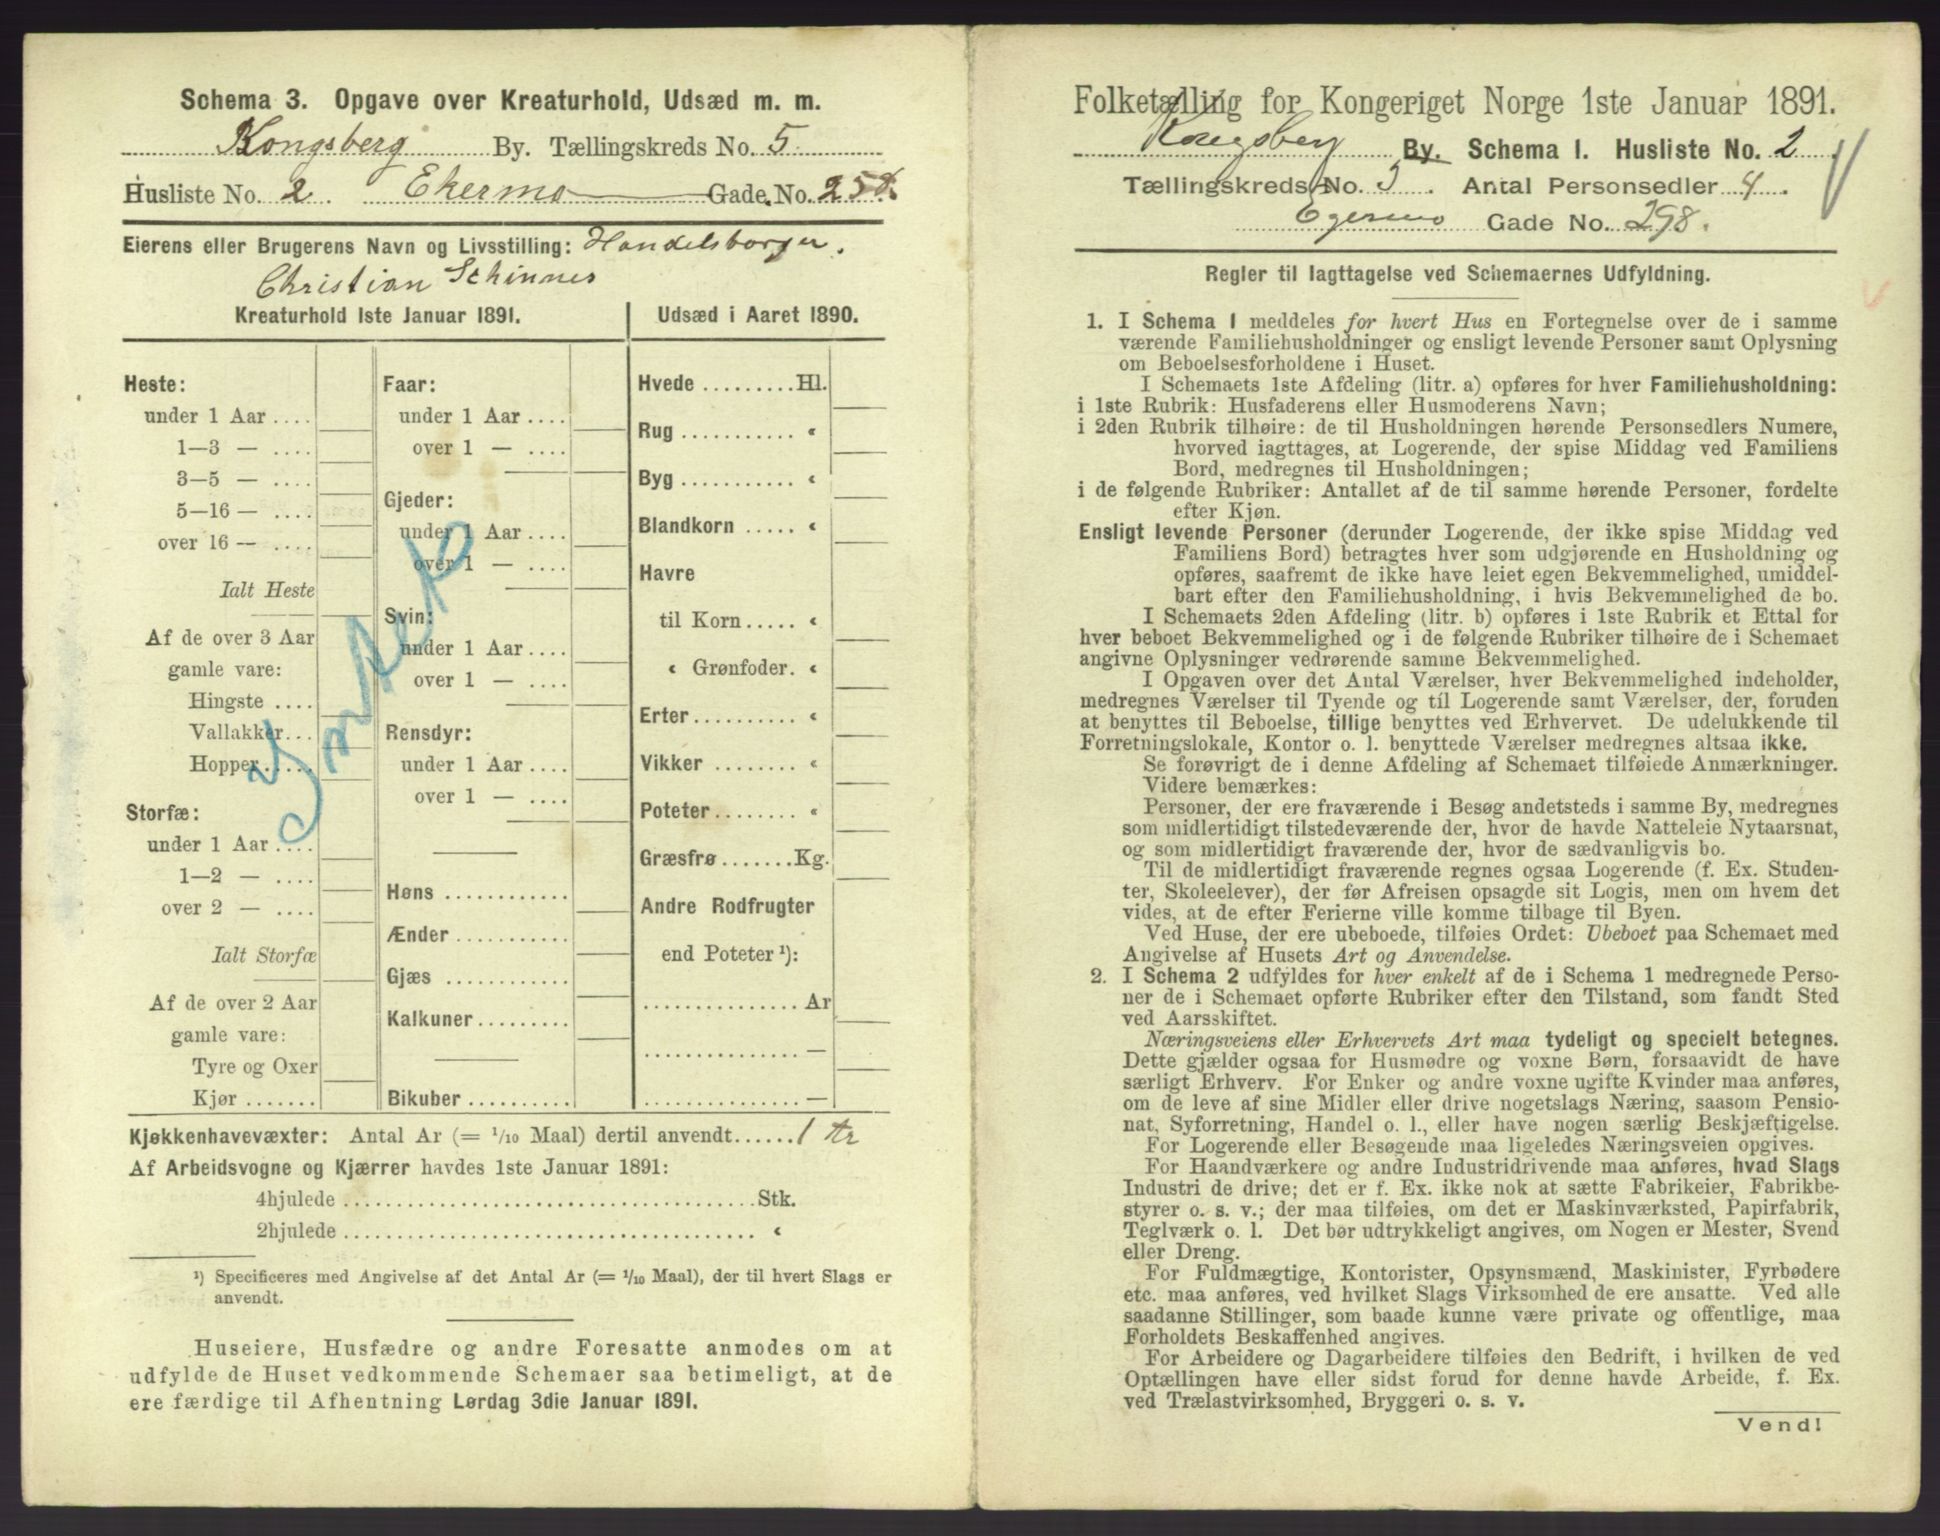 Schema 3. Opgave over Kreaturhold, Udsæd m. m.
Kongsberg By. Tællingskreds No. 5
Husliste No. 2 Ekermo Gade. No.
Eierens eller Brugerens Navn og Livsstilling: Handelsborger.
Christian Schinnes
Kreaturhold 1ste Januar 1891.
Heste:
under 1 Aar ....
1—3 — ....
3—5 — ....
5—16 — ....
over 16 — ....
Ialt Heste
Af de over 3 Aar
gamle vare:
Hingste ....
Vallakker...
Hopper.....
Storfæ:
under 1 Aar ....
1—2 — ....
over 2 — ....
Ialt Storfæ
Af de over 2 Aar
gamle vare:
Tyre og Oxer
Kjør .......
Faar:
under 1 Aar ....
over 1 — ....
Gjeder:
under 1 Aar ....
over 1 — ....
Svin:
under 1 Aar ....
over 1 — ....
Rensdyr:
under 1 Aar ....
over 1 — ....
Høns ............
Ænder ...........
Gjæs ............
Kalkuner.........
Bikuber ..........
Udsæd i Aaret 1890.
Hvede .........Hl.
Rug ........... «
Byg ........... «
Blandkorn ..... «
Havre
til Korn ..... «
« Grønfoder. «
Erter.......... «
Vikker ........ «
Poteter........ «
Græsfrø .......Kg.
Andre Rodfrugter
end Poteter ¹):
............... Ar
............... —
............... —
Kjøkkenhavevæxter: Antal Ar (= 1/10 Maal) dertil anvendt...... 1 Ar
Af Arbeidsvogne og Kjærrer havdes 1ste Januar 1891:
4hjulede ........................................ Stk.
2hjulede ........................................ «
¹) Specificeres med Angivelse af det Antal Ar (= 1/10 Maal), der til hvert Slags er
anvendt.
Huseiere, Husfædre og andre Foresatte anmodes om at
udfylde de Huset vedkommende Schemaer saa betimeligt, at de
ere færdige til Afhentning Lørdag 3die Januar 1891.
Folketælling for Kongeriget Norge 1ste Januar 1891.
Kongsberg By. Schema 1. Husliste No. 2
Tællingskreds No. 5. Antal Personsedler 4.
Egermo Gade No. 298.
Regler til Iagttagelse ved Schemaernes Udfyldning.
1. I Schema 1 meddeles for hvert Hus en Fortegnelse over de i samme
værende Familiehusholdninger og ensligt levende Personer samt Oplysning
om Beboelsesforholdene i Huset.
I Schemaets 1ste Afdeling (litr. a) opføres for hver Familiehusholdning:
i 1ste Rubrik: Husfaderens eller Husmoderens Navn;
i 2den Rubrik tilhøire: de til Husholdningen hørende Personsedlers Numere,
hvorved iagttages, at Logerende, der spise Middag ved Familiens
Bord, medregnes til Husholdningen;
i de følgende Rubriker: Antallet af de til samme hørende Personer, fordelte
efter Kjøn.
Ensligt levende Personer (derunder Logerende, der ikke spise Middag ved
Familiens Bord) betragtes hver som udgjørende en Husholdning og
opføres, saafremt de ikke have leiet egen Bekvemmelighed, umiddel-
bart efter den Familiehusholdning, i hvis Bekvemmelighed de bo.
I Schemaets 2den Afdeling (litr. b) opføres i 1ste Rubrik et Ettal for
hver beboet Bekvemmelighed og i de følgende Rubriker tilhøire de i Schemaet
angivne Oplysninger vedrørende samme Bekvemmelighed.
I Opgaven over det Antal Værelser, hver Bekvemmelighed indeholder,
medregnes Værelser til Tyende og til Logerende samt Værelser, der, foruden
at benyttes til Beboelse, tillige benyttes ved Erhvervet. De udelukkende til
Forretningslokale, Kontor o. l. benyttede Værelser medregnes altsaa ikke.
Se forøvrigt de i denne Afdeling af Schemaet tilføiede Anmærkninger.
Videre bemærkes:
Personer, der ere fraværende i Besøg andetsteds i samme By, medregnes
som midlertidigt tilstedeværende der, hvor de havde Natteleie Nytaarsnat,
og som midlertidigt fraværende der, hvor de sædvanligvis bo.
Til de midlertidigt fraværende regnes ogsaa Logerende (f. Ex. Studen-
ter, Skoleelever), der før Afreisen opsagde sit Logis, men om hvem det
vides, at de efter Ferierne ville komme tilbage til Byen.
Ved Huse, der ere ubeboede, tilføies Ordet: Ubeboet paa Schemaet med
Angivelse af Husets Art og Anvendelse.
2. I Schema 2 udfyldes for hver enkelt af de i Schema 1 medregnede Perso-
ner de i Schemaet opførte Rubriker efter den Tilstand, som fandt Sted
ved Aarsskiftet.
Næringsveiens eller Erhvervets Art maa tydeligt og specielt betegnes.
Dette gjælder ogsaa for Husmødre og voxne Børn, forsaavidt de have
særligt Erhverv. For Enker og andre voxne ugifte Kvinder maa anføres,
om de leve af sine Midler eller drive nogetslags Næring, saasom Pensio-
nat, Syforretning, Handel o. l., eller have nogen særlig Beskjæftigelse.
For Logerende eller Besøgende maa ligeledes Næringsveien opgives.
For Haandværkere og andre Industridrivende maa anføres, hvad Slags
Industri de drive; det er f. Ex. ikke nok at sætte Fabrikeier, Fabrikbe-
styrer o. s. v.; der maa tilføies, om det er Maskinværksted, Papirfabrik,
Teglværk o. l. Det bør udtrykkeligt angives, om Nogen er Mester, Svend
eller Dreng.
For Fuldmægtige, Kontorister, Opsynsmænd, Maskinister, Fyrbødere
etc. maa anføres, ved hvilket Slags Virksomhed de ere ansatte. Ved alle
saadanne Stillinger, som baade kunne være private og offentlige, maa
Forholdets Beskaffenhed angives.
For Arbeidere og Dagarbeidere tilføies den Bedrift, i hvilken de ved
Optællingen have eller sidst forud for denne havde Arbeide, f. Ex.
ved Trælastvirksomhed, Bryggeri o. s. v.
Vend!